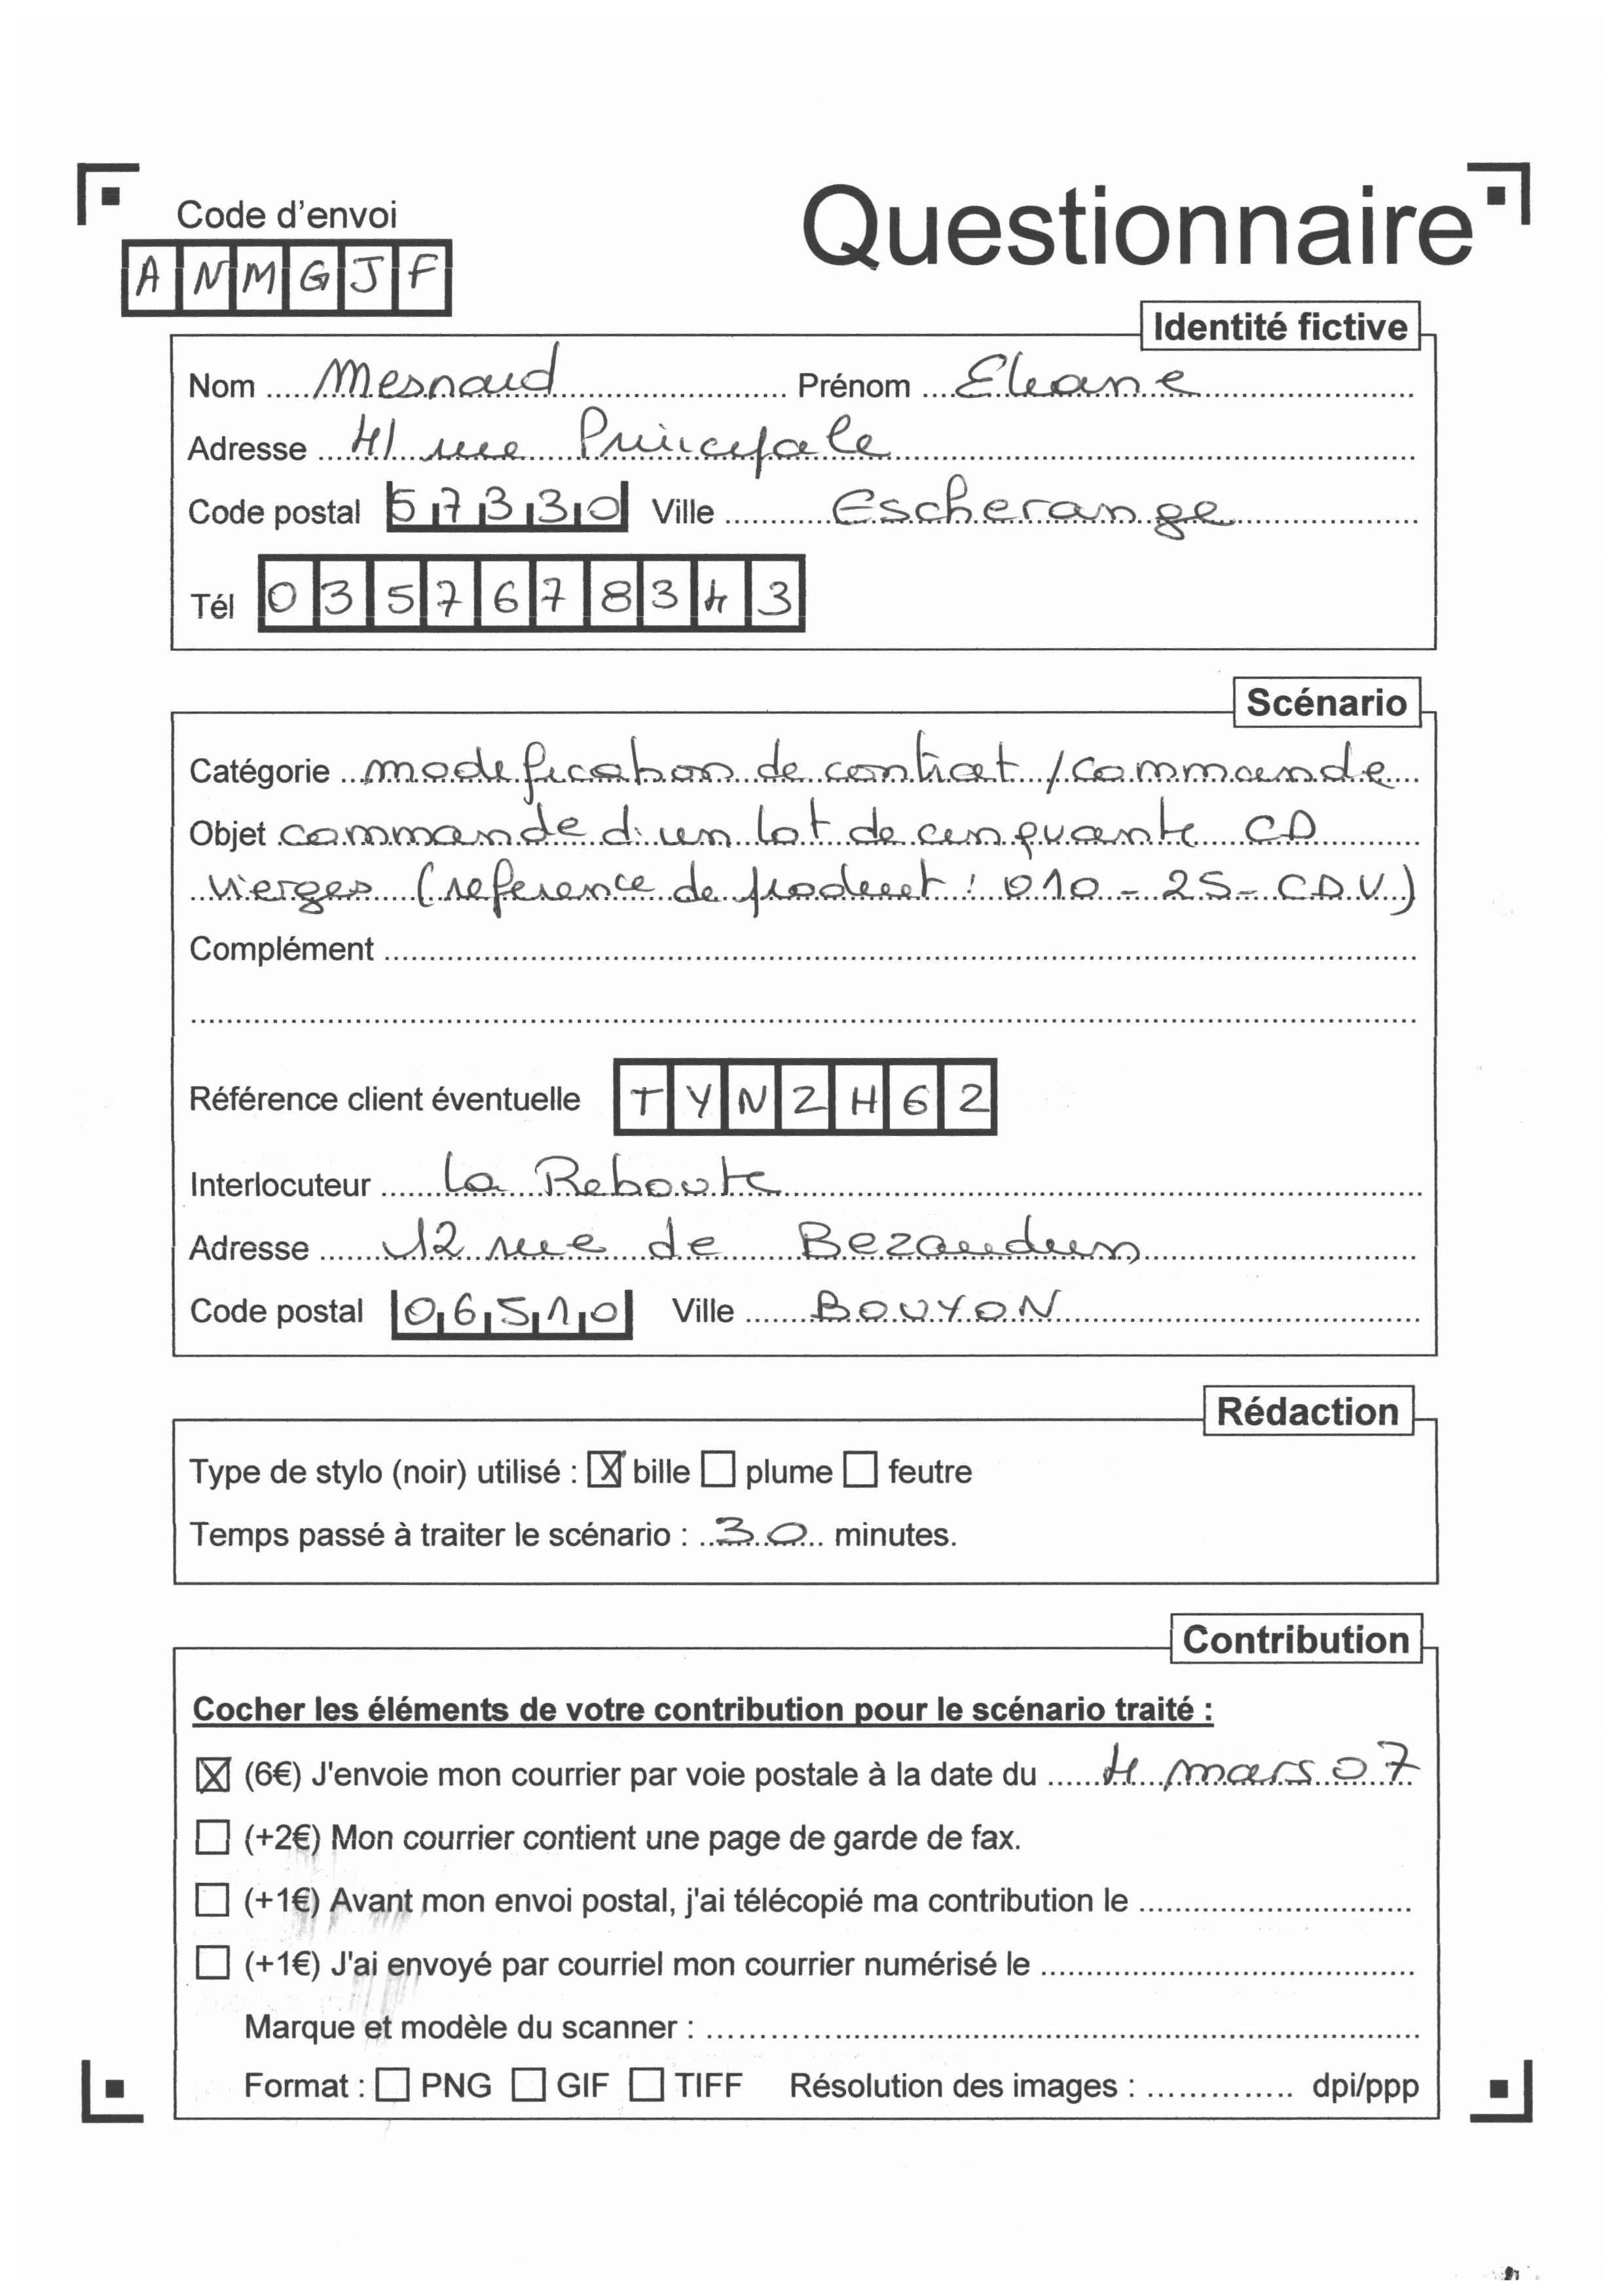 Code d'envoi
Questionnaire
A N M G J F
Identité fictive
Nom Mesnard Prénom Eliane
Adresse 41 rue Principale
Code postal 57330 Ville Escherange
Tél 0357678343
Scénario
Catégorie modification de contrat / commande
Objet commande d'un lot de cinquante CD
vierges (reference de produit : 010-25-CDV)
Complément
Référence client éventuelle TYNZH62
Interlocuteur La Reboute
Adresse 12 rue de Bezaudun
Code postal 06510 Ville BOUYON
Rédaction
Type de stylo (noir) utilisé : ☒ bille ☐ plume ☐ feutre
Temps passé à traiter le scénario : 30 minutes.
Contribution
Cocher les éléments de votre contribution pour le scénario traité :
☒ (6€) J'envoie mon courrier par voie postale à la date du 4 mars 07
☐ (+2€) Mon courrier contient une page de garde de fax.
☐ (+1€) Avant mon envoi postal, j'ai télécopié ma contribution le
☐ (+1€) J'ai envoyé par courriel mon courrier numérisé le
Marque et modèle du scanner :
Format : ☐ PNG ☐ GIF ☐ TIFF Résolution des images : dpi/ppp